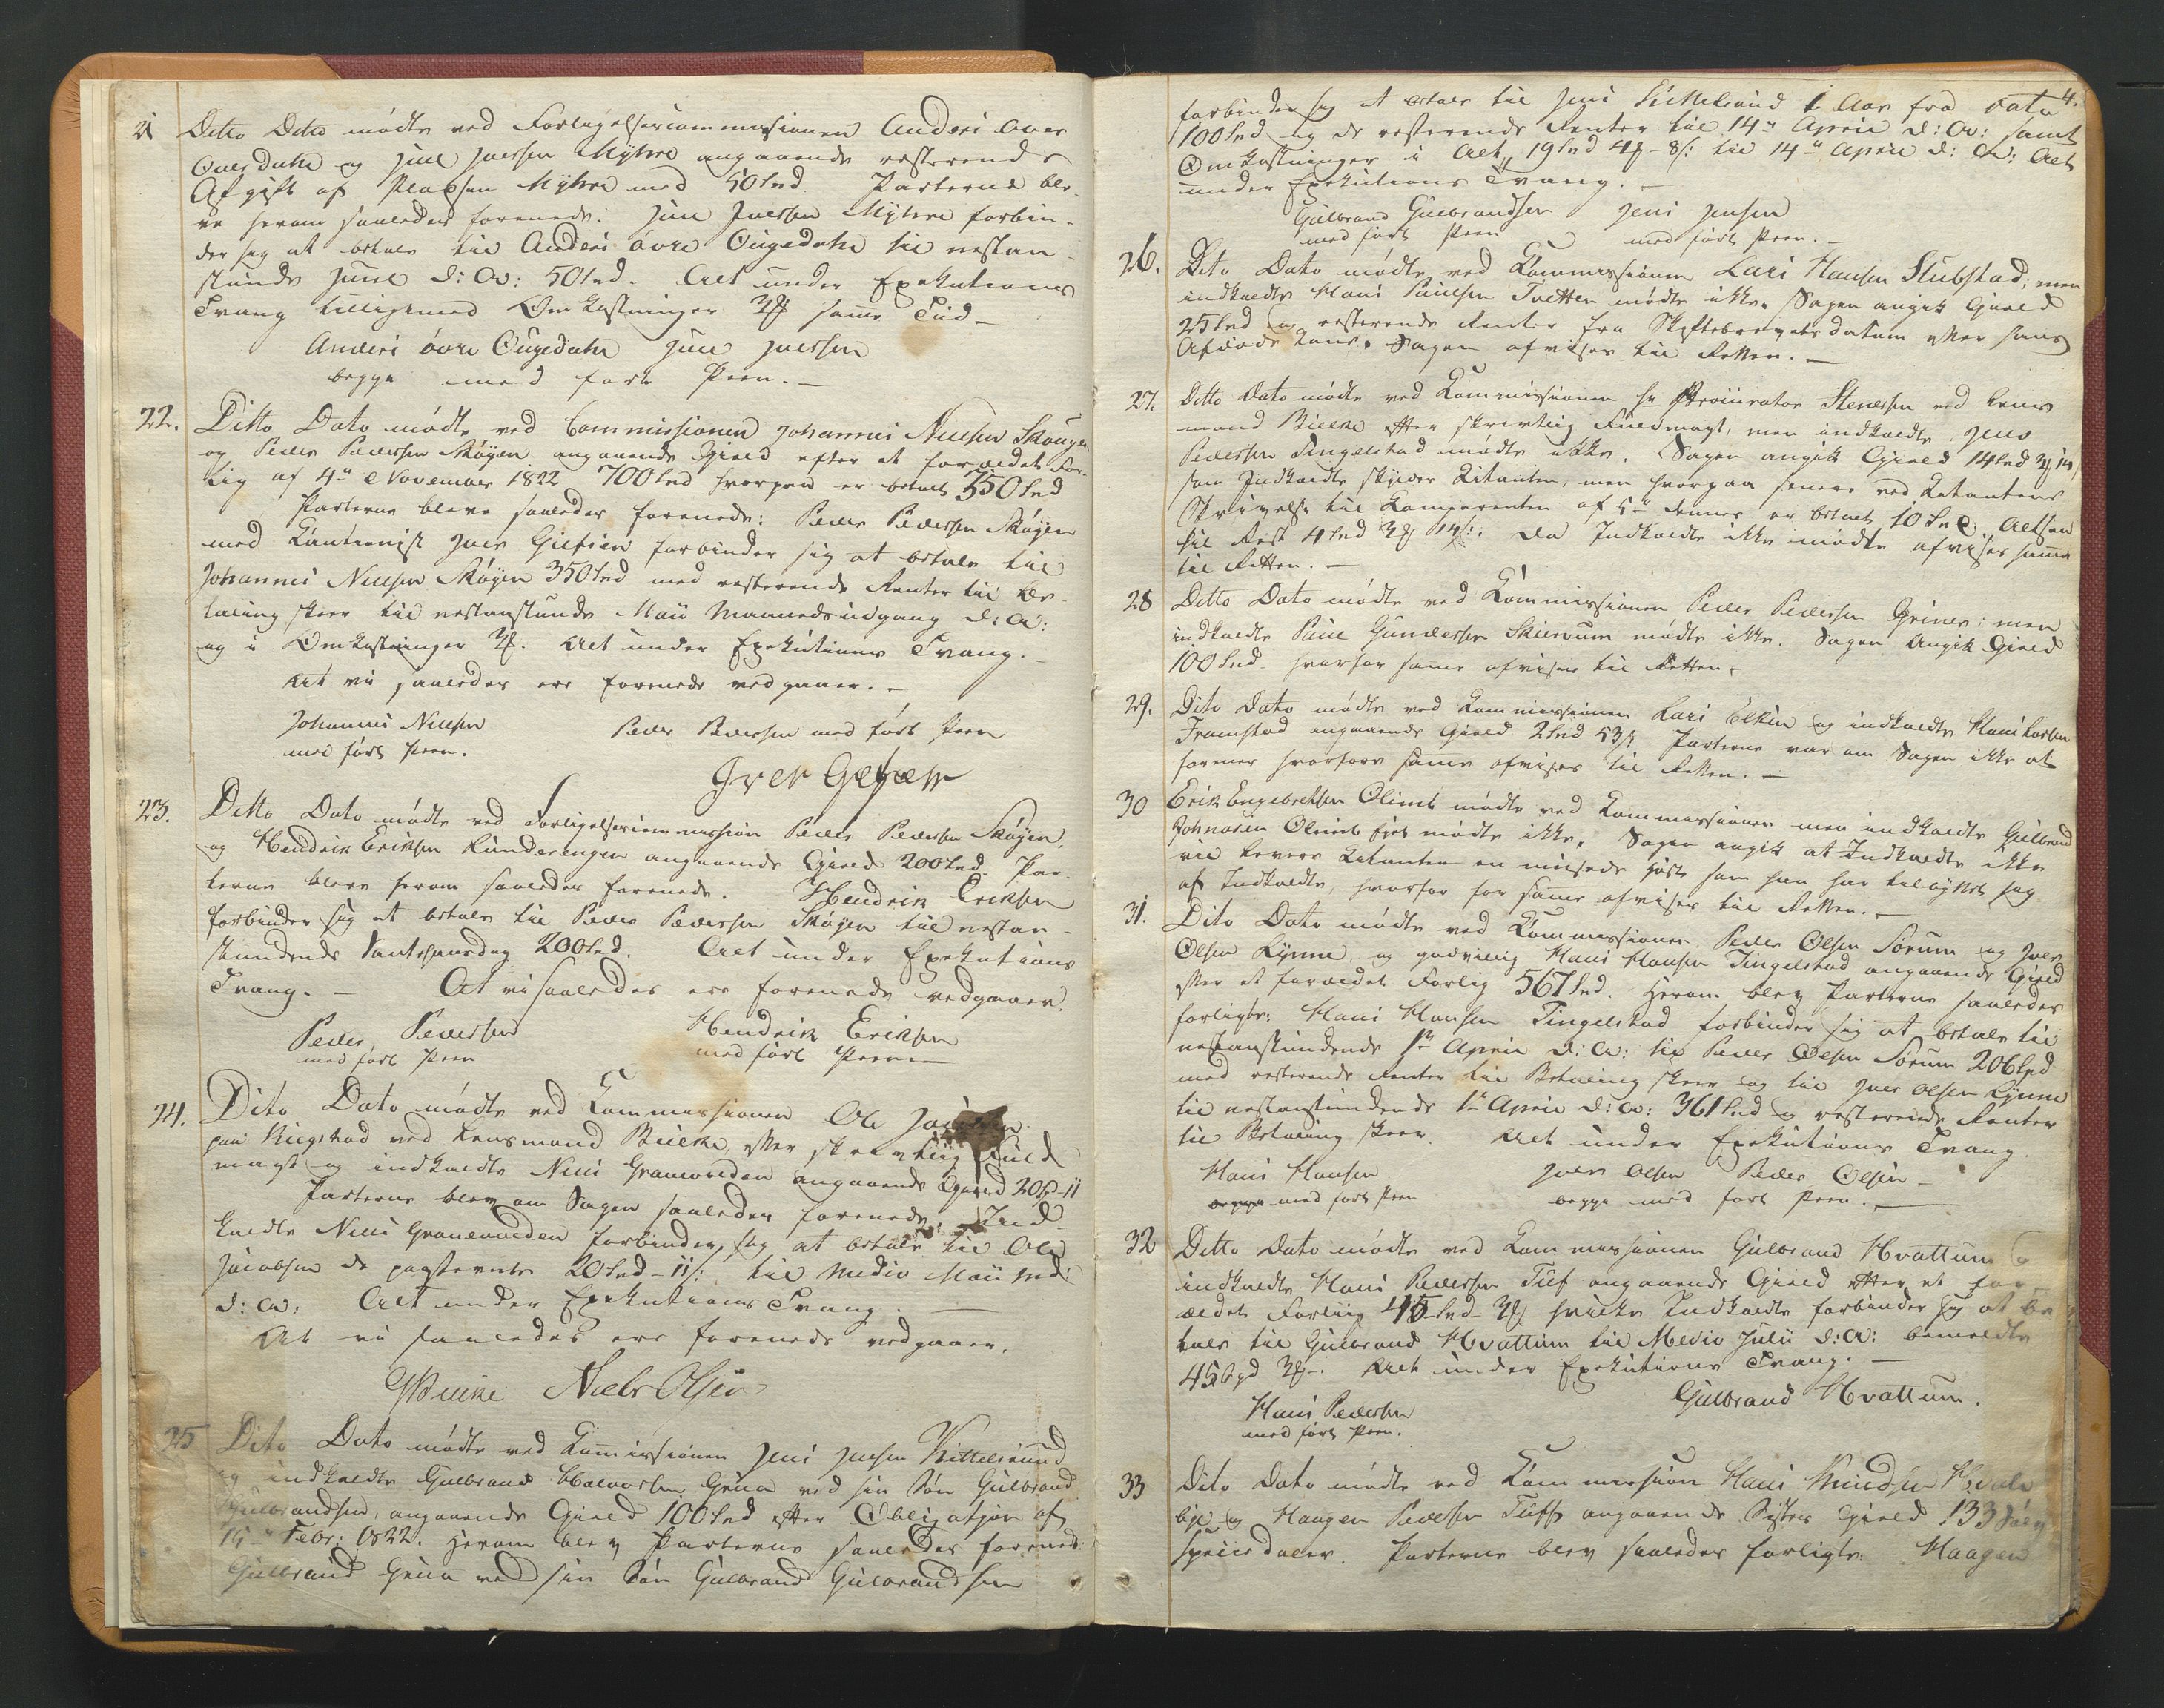 21 Ditto Dato mødte ved Forligelsescommissionen Anders øvre
Ougedahl og Juel Juelsen Myhre angaaende resterende
Afgift af Pladsen Myhre med 50 Spd. Parterne ble-
ve herom saaledes forenede: Juel Juelsen Myhre forbin-
der sig at betale til Anders øvre Ougedahl til nestan-
stunde Juul d: A: 50 Spd. Alt under Exekutions
Tvang tilligemed Omkostninger samme Tiid –
Anders øvre Ougedahl Juel Juelsen
begge med ført Pen. –
22. Ditto Dato mødte ved Commissionen Johannes Nielsen Skøyen
og Peder Pedersen Skøyen angaaende Gield efter et forældet For-
lig af 4de November 1822 700 Spd hvorpaa er betalt 350 Spd
Parterne bleve saaledes forenede: Peder Pedersen Skøyen
med Kautionist Iver Giefsen forbinder sig at betale til
Johannes Nielsen Skøyen 350 Spd med resterende Renter til Be-
taling skeer til nestanstunde Maii Maaneds udgang d: A:
og i Omkostninger Alt under Exekutions Tvang. –
At vi saaledes ere forenede vedgaaer. –
Johannes Nielsen Peder Pedersen med ført Pen
med ført Pen.
Iver
23. Ditto Dato mødte ved Forligelsescommission Peder Pedersen Skøyen,
og Hendrik Eriksen Lundsengen angaaende Gield 200 Spd. Par-
terne bleve herom saaledes forenede. Hendrik Eriksen
forbinder sig at betale til Peder Pedersen Skøyen til nestan-
stundende 200 Spd. Alt under Exekutions
Tvang. – At vi saaledes ere forenede vedgaaer.
Peder Pedersen Hendrik Eriksen
med ført Pen med ført Pen –
24. Dito Dato mødte ved Commissionen Ole
paa Ringstad ved Lensmand Bielke, efter skrevtlig Fuld
magt og indkaldte Niels Granevolden angaaende Gield 20 11
Parterne blev om Sagen saaledes forenede: Ind-
kaldte Niels Granevolden forbinder sig at betale til Ole
Jacobsen de paastevnte 20 Spd – 11 s: til Medio Maii
d: A: Alt under Exekutions Tvang. –
At vi saaledes ere forenede vedgaaer.
Bielke Niels Olsen
25 Dito Dato mødte ved Commissionen Jens Jensen Kittelsrund
og indkaldte Gulbrand Halvorsen Grina ved sin Søn Gulbrand
Gulbrandsen, angaaende Gield 100 Spd efter Obligatjon af
Febr: 1822. Herom blev Parterne saaledes forened:
Gulbrand Grina ved sin Søn Gulbrand Gulbrandsen
4.
forbinder sig at betale til Jens Kittelsrund 1 Aar fra dato
100 Spd og de resterende Renter til 14de April d: A: samt
Omkostninger i Alt 19 Spd 4 – 8 s: til 14de April d: A: Alt
under Exekutions Tvang. –
Gulbrand Gulbrandsen Jens Jensen
med ført Pen med ført Pen. –
26. Dito Dato mødte ved Commissionen Lars Hansen Stubstad; men
indkaldte Hans Paulsen Tvetten mødte ikke. Sagen angik Gield
25 Spd og resterende Renter fra Skiftebrevets datum efter hans
Afdøde Kone. Sagen afvises til Retten. –
27. Ditto Dato mødte ved Commissionen Hr Procurator Stenersen ved Lens
mand Bielke efter skrevtlig Fuldmagt, men indkaldte Jens
Pedersen Tingelstad mødte ikke. Sagen angik Gield 14 Spd 14
som Indkaldte skylder Citanten, men hvorpaa senere ved Citantens
Skrivelse til Comparenten af 5te dennes er betalt 10 Spd. Altsaa
til Rest 4 Spd 14 s:. Da Indkaldte ikke mødte afvises samme
til Retten. –
28 Ditto Dato mødte ved Commissionen Peder Pedersen Griner: men
indkaldte Paul Gundersen Skiervum mødte ikke. Sagen angik Gield
100 Spd. hvorfor samme afvises til Retten. –
29. Dito Dato mødte ved Commissionen Lars Elken og indkaldte Hans Larsen
Framstad angaaende Gield 2 Spd 53 s: Parterne var om Sagen ikke at
forenes hvorfore samme afvises til Retten. –
30 Erik Engebretsen Olimb mødte ved Commissionen men indkaldte Gulbrand
Johnsen Olimb Ejet mødte ikke. Sagen angik at Indkaldte ikke
vil levere Citanten en som han har tilbyttet sig
af Indkaldte, hvorfor for samme afvises til Retten. –
31. Dito Dato mødte ved Commissionen Peder Olsen Sørum og Iver
Olsen Lynne, og godvillig Hans Hansen Tingelstad angaaende Gield
efter et forældet Forlig 567 Spd. Herom blev Parterne saaledes
forligte: Hans Hansen Tingelstad forbinder sig at betale til
nestanstundende 1ste April d: A: til Peder Olsen Sørum 206 Spd
med resterende Renter til Betaling skeer og til Iver Olsen Lynne
til nestanstundende 1ste April d: A: 361 Spd og resterende Renter
til Betaling skeer. Alt under Exekutions Tvang.
Hans Hansen Iver Olsen Peder Olsen –
med ført Pen begge med ført Pen. –
32 Ditto Dato mødte ved Commissionen Gulbrand Hvattum og
indkaldte Hans Pedersen Tuf angaaende Gield efter et for
ældet Forliig 45 Spd hvilke Indkaldte forbinder sig at be
tale til Gulbrand Hvattum til Medio Julii d: A: bemeldte
45 Spd Alt under Exekutions Tvang. –
Gulbrand Hvattum.
Hans Pedersen
med ført Pen.
33 Dito Dato mødte ved Commission Hans Knudsen Hvale
bye og Haagen Pedersen Tuff angaaende Restes Gield 133
speciedaler. Parterne blev saaledes forligte: Haagen